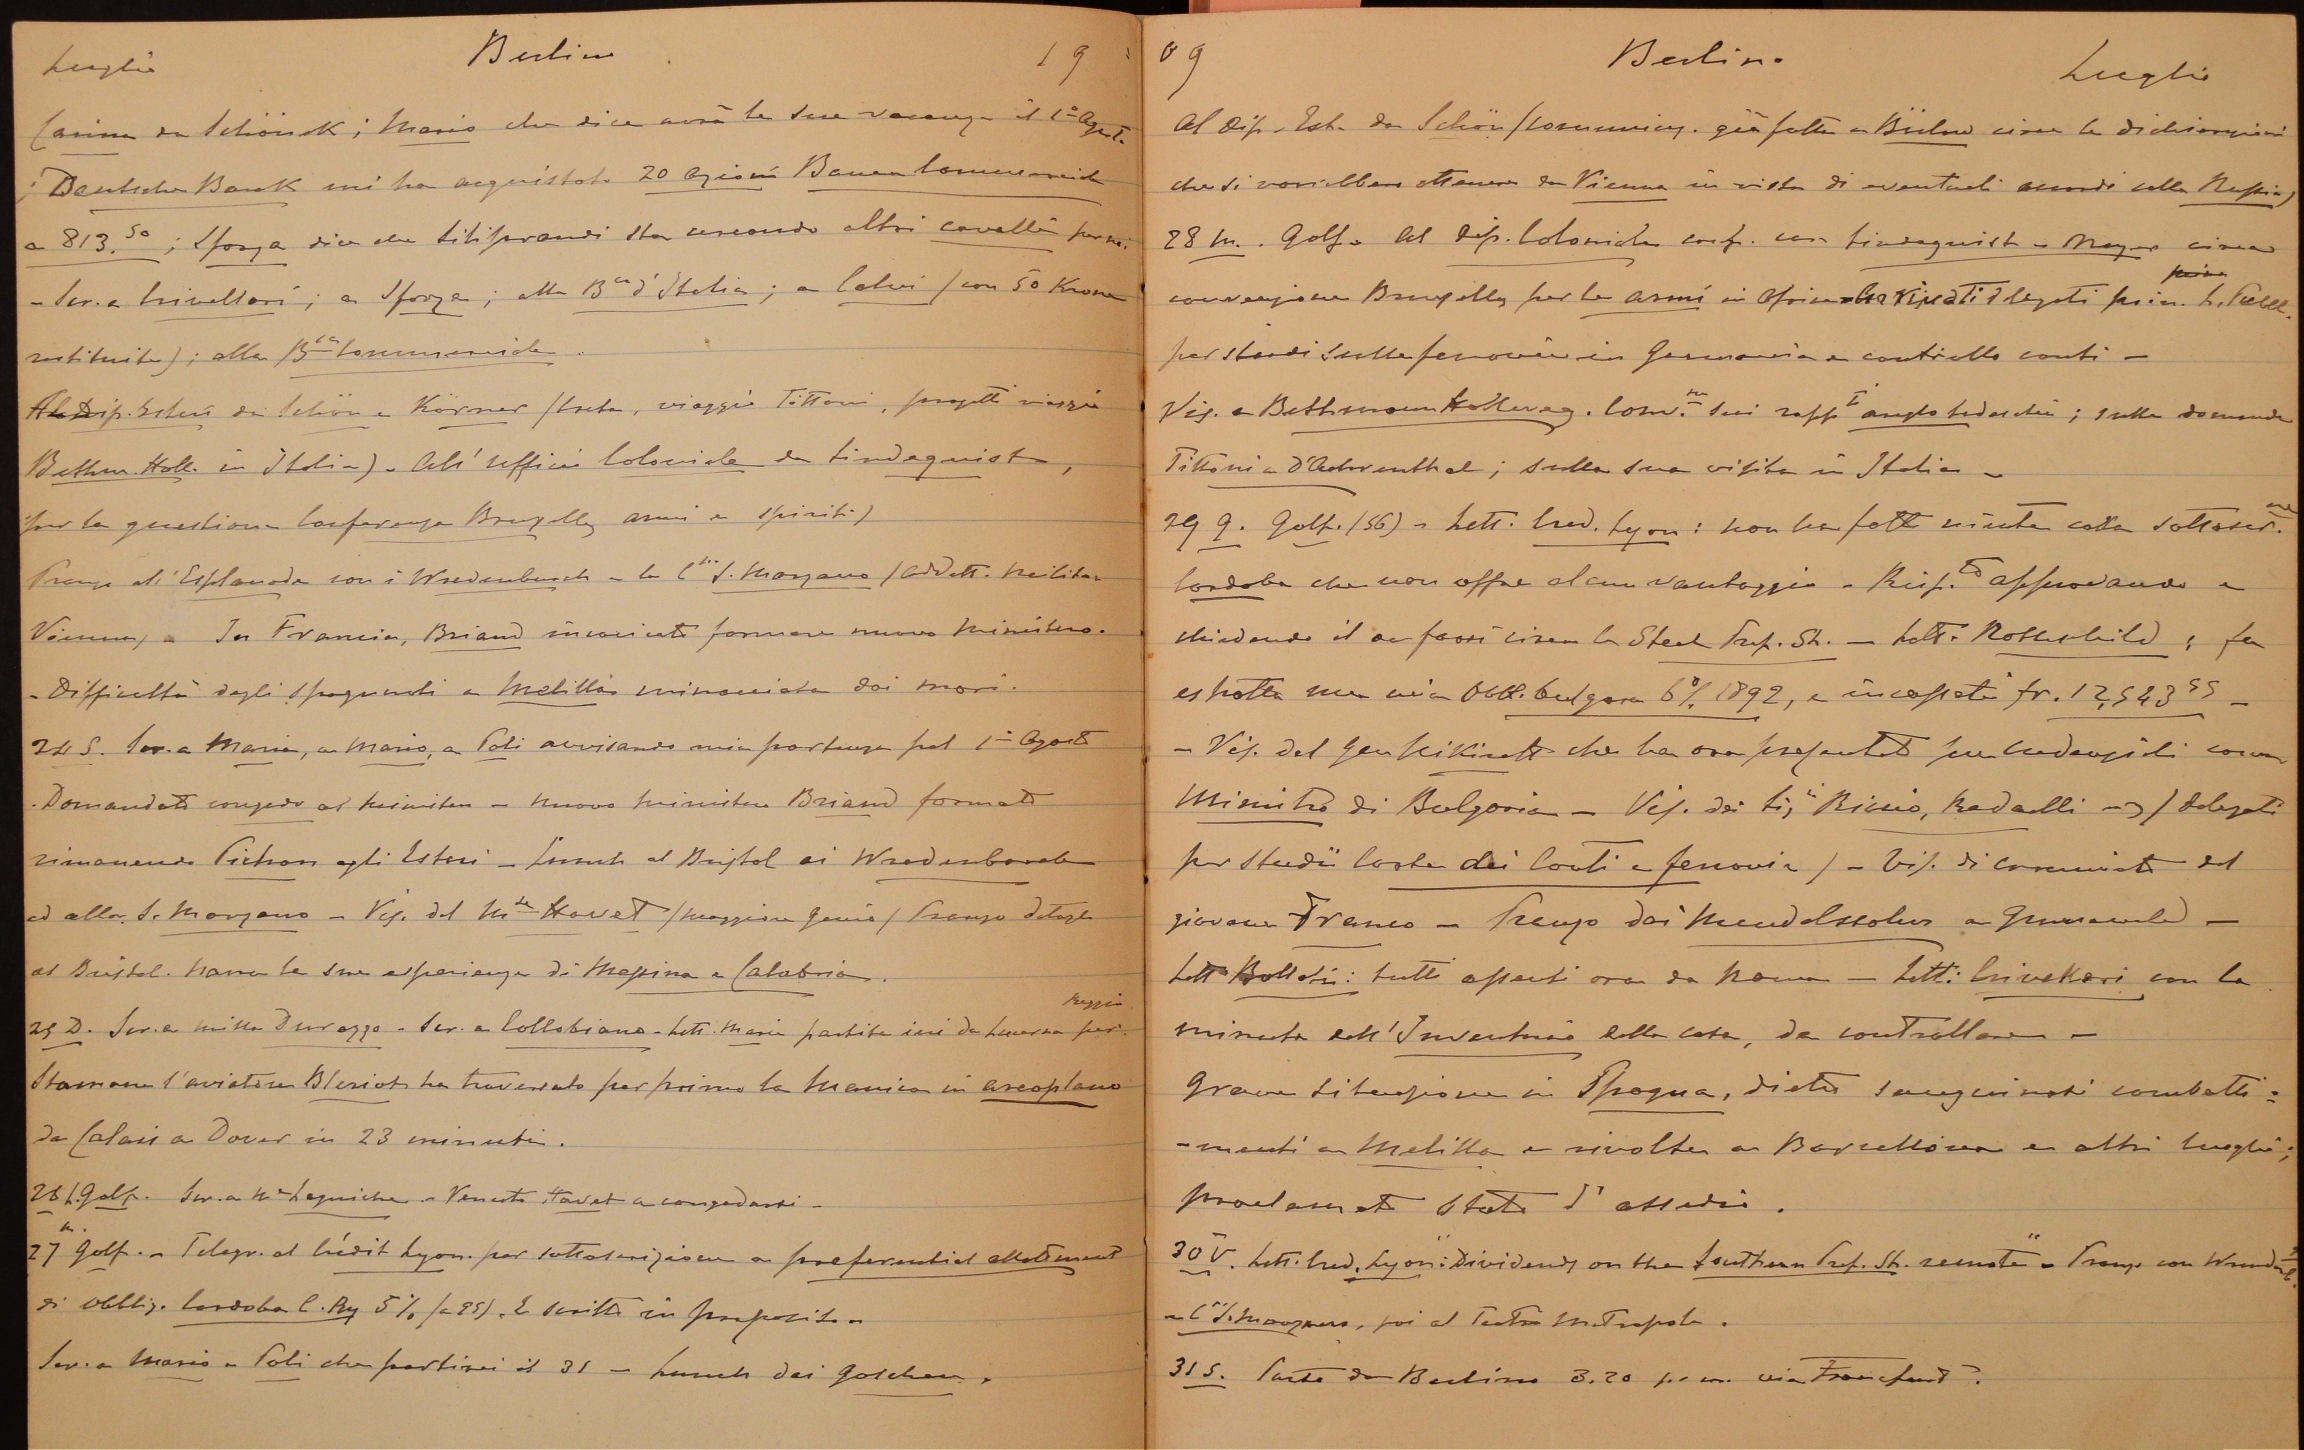 Luglio Berlino 19
Carina da Schönek; Mario che dice avrà le sue vacanze il 1° Agost.
; Deutsche Bank mi ha acquistato 20 azioni Banca Commerciale
a 813.50; Sforza dice che Litiprandi sta cercando altri cavalli per noi.
- Scr. a Crivellari; a Sforza; alla Bca d'Italia; a Calvi (con 50 Krone
restituite); alla Bca Commerciale.
Al Dip. Esteri da Schön e Körner (Creta, viaggio Tittoni, progetti viaggio
Bethm. Holl. in Italia). All'Ufficio Coloniale da Lindequist,
per la questione Conferenza Bruxelles armi e spiriti)
Pranzo all'Esplanade con i Wredenburch e la Css. S. Marzano (Addett. Militare
Vienna) - In Francia, Briand incaricato formare nuovo Ministero.
- Difficoltà degli Spagnuoli a Melilla minacciata dai mori.
24 S. Scr. a Maria, a Mario, a Poli avvisando mia partenza pel 1° Agosto
. Domandato congedo al Ministero - Nuovo Ministero Briand formato
rimanendo Pichon agli Esteri - Lunch al Bristol ai Wredenburch
ed alla S. Marzano - Vis. del Mse Havet (maggiore genio) Pranzo
al Bristol. Narra le sue esperienze di Messina e Calabria.
25 D. Scr. a Durazzo - Scr. a Collobiano - Lett. Maria partita ieri da Lucerna per Reggio.
Stamane l'aviatore Bleriot ha traversato per primo la Manica in areoplano
da Calais a Dover in 23 minuti.
26 L. Golf. Scr. a Me - Venuto Havet a congedarsi -
27 M. Golf. - Telegr. al Crédit Lyon. per sottoscrizione a preferential allotment
di obblig. Cordoba C. Ry 5% (a 95). E scritto in proposito -
Scr. a Mario e Poli che partirei il 31 - Lunch dai Goschen.
09 Berlino Luglio
Al Dip. Est. da Schön (comunicaz. già fatta a Bülow circa le dichiarazioni
che si vorrebbero ottenere da Vienna in vista di eventuali accordi colla Russia)
28 M. Golf. Al Dip. Coloniale conf. con Lindequist e Meyer circa
convenzione Bruxelles per le armi in Africa delegati
per studi sulle ferrovie in Germania e controllo conti -
Vis. a Bethmann Hollweg. Conv.ne sui rapp.ti anglo tedeschi; sulle domande
Tittoni a d'Aehrenthal; sulla sua visita in Italia -
29 G. Golf. (56) - Lett. Cred. Lyon: non ha fatto
Cordoba che non offre alcun vantaggio - Risp.to approvando e
chiedendo il da farsi circa le Steel Pref. St. - Lett. Rothschild: fu
estratta una mia Obbl. bulgara 6% 1892, e incassati fr. 12,543 55 -
- Vis. del Gen. che ha ora presentato sue credenziali come
Ministro di Bulgaria - Vis. dei Sig.ri Riccio, Radaelli (delegati
per studii Corte dei Conti e ferrovie) - Vis. di commiato del
giovane Franco - Pranzo dai Mendelssohn a Grunewald -
Lett. tutti assenti ora da Roma - Lett. Crivellari con la
minuta dell'Inventario della casa, da controllare -
Grave situazione in Spagna, dietro sanguinosi combatti=
-menti a Melilla e rivolte a Barcellona e altri luoghi;
proclamato stato d'assedio.
30 V. Lett. Cred. Lyon: "Dividends on the Southern Pref. St. remote" - Pranzo con
e Css S. Marzano, poi al Teatro Metropole.
31 S. Parto da Berlino 3.20 p.m. via Francfort.